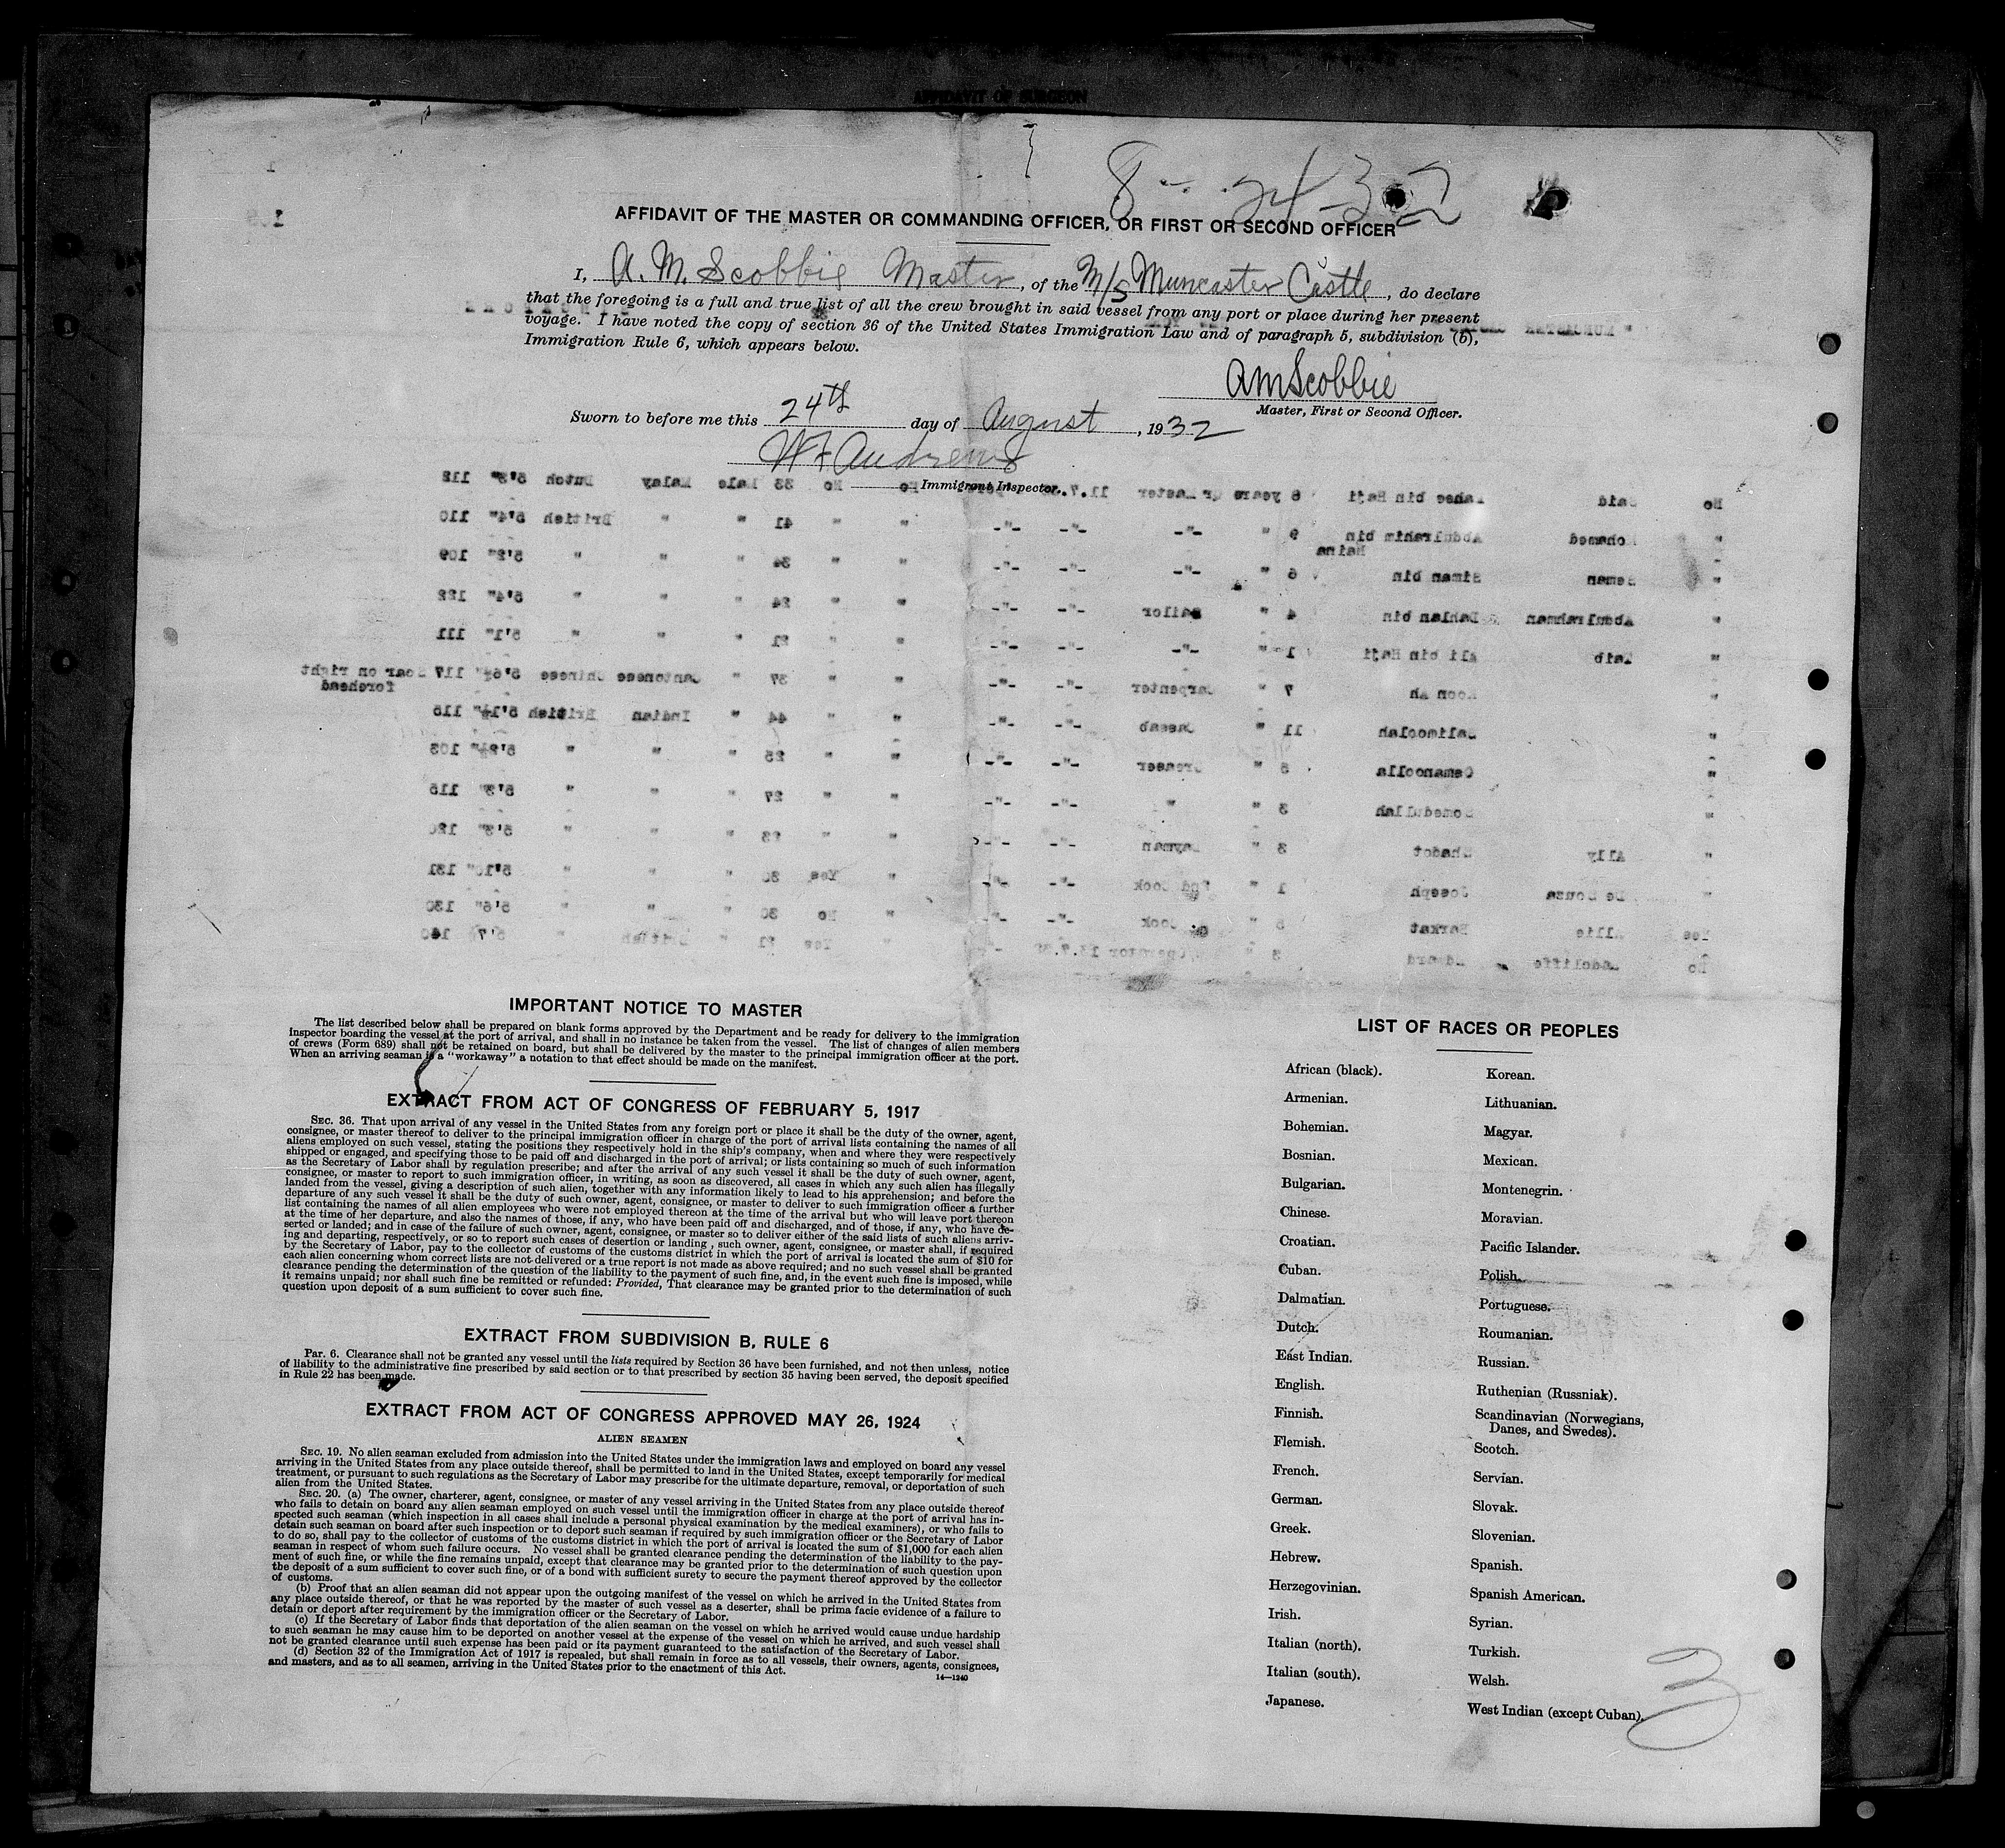 AFFIDAVIT OF SURGEON
8 - 24-32
AFFIDAVIT OF THE MASTER OR COMMANDING OFFICER, OR FIRST OR SECOND OFFICER
I, A. M. Scobbie Master, of the M/S Muncaster Castle, do declare
that the foregoing is a full and true list of all the crew brought in said vessel from any port or place during her present
voyage. I have noted the copy of section 36 of the United States Immigration Law and of paragraph 5, subdivision (b),
Immigration Rule 6, which appears below.
AMScobbie
Master, First or Second Officer.
Sworn to before me this 24th day of August, 1932
Andrews
Immigrant Inspector.
No Said Tahee bin Haji 6 years Qr Master 11.7. No No 33 Male Malay Dutch 5'3" 112
" Mohamed Abdulrahim bin 9 " -"- -"- -"- " " 41 " " British 5'4" 110
Haina
" Seman Siman bin 6 " -"- -"- -"- " " 34 " " " 5'2" 109
" Abdulrahman Dahlan bin 4 " Sailor -"- -"- " " 24 " " " 5'4" 122
" Taib Ali bin Haji 1 " -"- -"- -"- " " 21 " " " 5'1" 111
" Koon Ah 7 " Carpenter -"- -"- " " 37 " Cantonese Chinese 5'6½" 117 Scar on right
forehead
" Salimoolah 11 " Cassab -"- -"- " " 44 " Indian British 5'1½" 115
" Osmanoolla 5 " Greaser -"- -"- " " 25 " " " 5'2½" 103
" Somedullah 3 " " -"- -"- " " 27 " " " 5'3" 115
" Ally Chadot 3 " -"- -"- " 23 " " " 5'3" 120
" De Souza Joseph 1 " 2nd Cook -"- -"- " Yes 30 " " " 5'10" 131
Yes Allie Barkat 5 " Cook -"- -"- " No 30 " " " 5'6" 130
No Radcliffe Edward 3 " Operator 13.7. " Yes 21 " British " 5'7" 140
IMPORTANT NOTICE TO MASTER
The list described below shall be prepared on blank forms approved by the Department and be ready for delivery to the immigration
inspector boarding the vessel at the port of arrival, and shall in no instance be taken from the vessel. The list of changes of alien members
of crews (Form 689) shall not be retained on board, but shall be delivered by the master to the principal immigration officer at the port.
When an arriving seaman is a "workaway" a notation to that effect should be made on the manifest.
EXTRACT FROM ACT OF CONGRESS OF FEBRUARY 5, 1917
SEC. 36. That upon arrival of any vessel in the United States from any foreign port or place it shall be the duty of the owner, agent,
consignee, or master thereof to deliver to the principal immigration officer in charge of the port of arrival lists containing the names of all
aliens employed on such vessel, stating the positions they respectively hold in the ship's company, when and where they were respectively
shipped or engaged, and specifying those to be paid off and discharged in the port of arrival; or lists containing so much of such information
as the Secretary of Labor shall by regulation prescribe; and after the arrival of any such vessel it shall be the duty of such owner, agent,
consignee, or master to report to such immigration officer, in writing, as soon as discovered, all cases in which any such alien has illegally
landed from the vessel, giving a description of such alien, together with any information likely to lead to his apprehension; and before the
departure of any such vessel it shall be the duty of such owner, agent, consignee, or master to deliver to such immigration officer a further
list containing the names of all alien employees who were not employed thereon at the time of the arrival but who will leave port thereon
at the time of her departure, and also the names of those, if any, who have been paid off and discharged, and of those, if any, who have de-
serted or landed; and in case of the failure of such owner, agent, consignee, or master so to deliver either of the said lists of such aliens arriv-
ing and departing, respectively, or so to report such cases of desertion or landing, such owner, agent, consignee, or master shall, if required
by the Secretary of Labor, pay to the collector of customs of the customs district in which the port of arrival is located the sum of $10 for
each alien concerning whom correct lists are not delivered or a true report is not made as above required; and no such vessel shall be granted
clearance pending the determination of the question of the liability to the payment of such fine, and, in the event such fine is imposed, while
it remains unpaid; nor shall such fine be remitted or refunded: Provided, That clearance may be granted prior to the determination of such
question upon deposit of a sum sufficient to cover such fine.
EXTRACT FROM SUBDIVISION B, RULE 6
Par. 6. Clearance shall not be granted any vessel until the lists required by Section 36 have been furnished, and not then unless, notice
of liability to the administrative fine prescribed by said section or to that prescribed by section 35 having been served, the deposit specified
in Rule 22 has been made.
EXTRACT FROM ACT OF CONGRESS APPROVED MAY 26, 1924
ALIEN SEAMEN
SEC. 19. No alien seaman excluded from admission into the United States under the immigration laws and employed on board any vessel
arriving in the United States from any place outside thereof, shall be permitted to land in the United States, except temporarily for medical
treatment, or pursuant to such regulations as the Secretary of Labor may prescribe for the ultimate departure, removal, or deportation of such
alien from the United States.
SEC. 20. (a) The owner, charterer, agent, consignee, or master of any vessel arriving in the United States from any place outside thereof
who fails to detain on board any alien seaman employed on such vessel until the immigration officer in charge at the port of arrival has in-
spected such seaman (which inspection in all cases shall include a personal physical examination by the medical examiners), or who fails to
detain such seaman on board after such inspection or to deport such seaman if required by such immigration officer or the Secretary of Labor
to do so, shall pay to the collector of customs of the customs district in which the port of arrival is located the sum of $1,000 for each alien
seaman in respect of whom such failure occurs. No vessel shall be granted clearance pending the determination of the liability to the pay-
ment of such fine, or while the fine remains unpaid, except that clearance may be granted prior to the determination of such question upon
the deposit of a sum sufficient to cover such fine, or of a bond with sufficient surety to secure the payment thereof approved by the collector
of customs.
(b) Proof that an alien seaman did not appear upon the outgoing manifest of the vessel on which he arrived in the United States from
any place outside thereof, or that he was reported by the master of such vessel as a deserter, shall be prima facie evidence of a failure to
detain or deport after requirement by the immigration officer or the Secretary of Labor.
(c) If the Secretary of Labor finds that deportation of the alien seaman on the vessel on which he arrived would cause undue hardship
to such seaman he may cause him to be deported on another vessel at the expense of the vessel on which he arrived, and such vessel shall
not be granted clearance until such expense has been paid or its payment guaranteed to the satisfaction of the Secretary of Labor.
(d) Section 32 of the Immigration Act of 1917 is repealed, but shall remain in force as to all vessels, their owners, agents, consignees,
and masters, and as to all seamen, arriving in the United States prior to the enactment of this Act.
14—1240
LIST OF RACES OR PEOPLES
African (black).
Armenian.
Bohemian.
Bosnian.
Bulgarian.
Chinese.
Croatian.
Cuban.
Dalmatian.
Dutch.
East Indian.
English.
Finnish.
Flemish.
French.
German.
Greek.
Hebrew.
Herzegovinian.
Irish.
Italian (north).
Italian (south).
Japanese.
Korean.
Lithuanian.
Magyar.
Mexican.
Montenegrin.
Moravian.
Pacific Islander.
Polish.
Portuguese.
Roumanian.
Russian.
Ruthenian (Russniak).
Scandinavian (Norwegians,
Danes, and Swedes).
Scotch.
Servian.
Slovak.
Slovenian.
Spanish.
Spanish American.
Syrian.
Turkish.
Welsh.
West Indian (except Cuban).
3